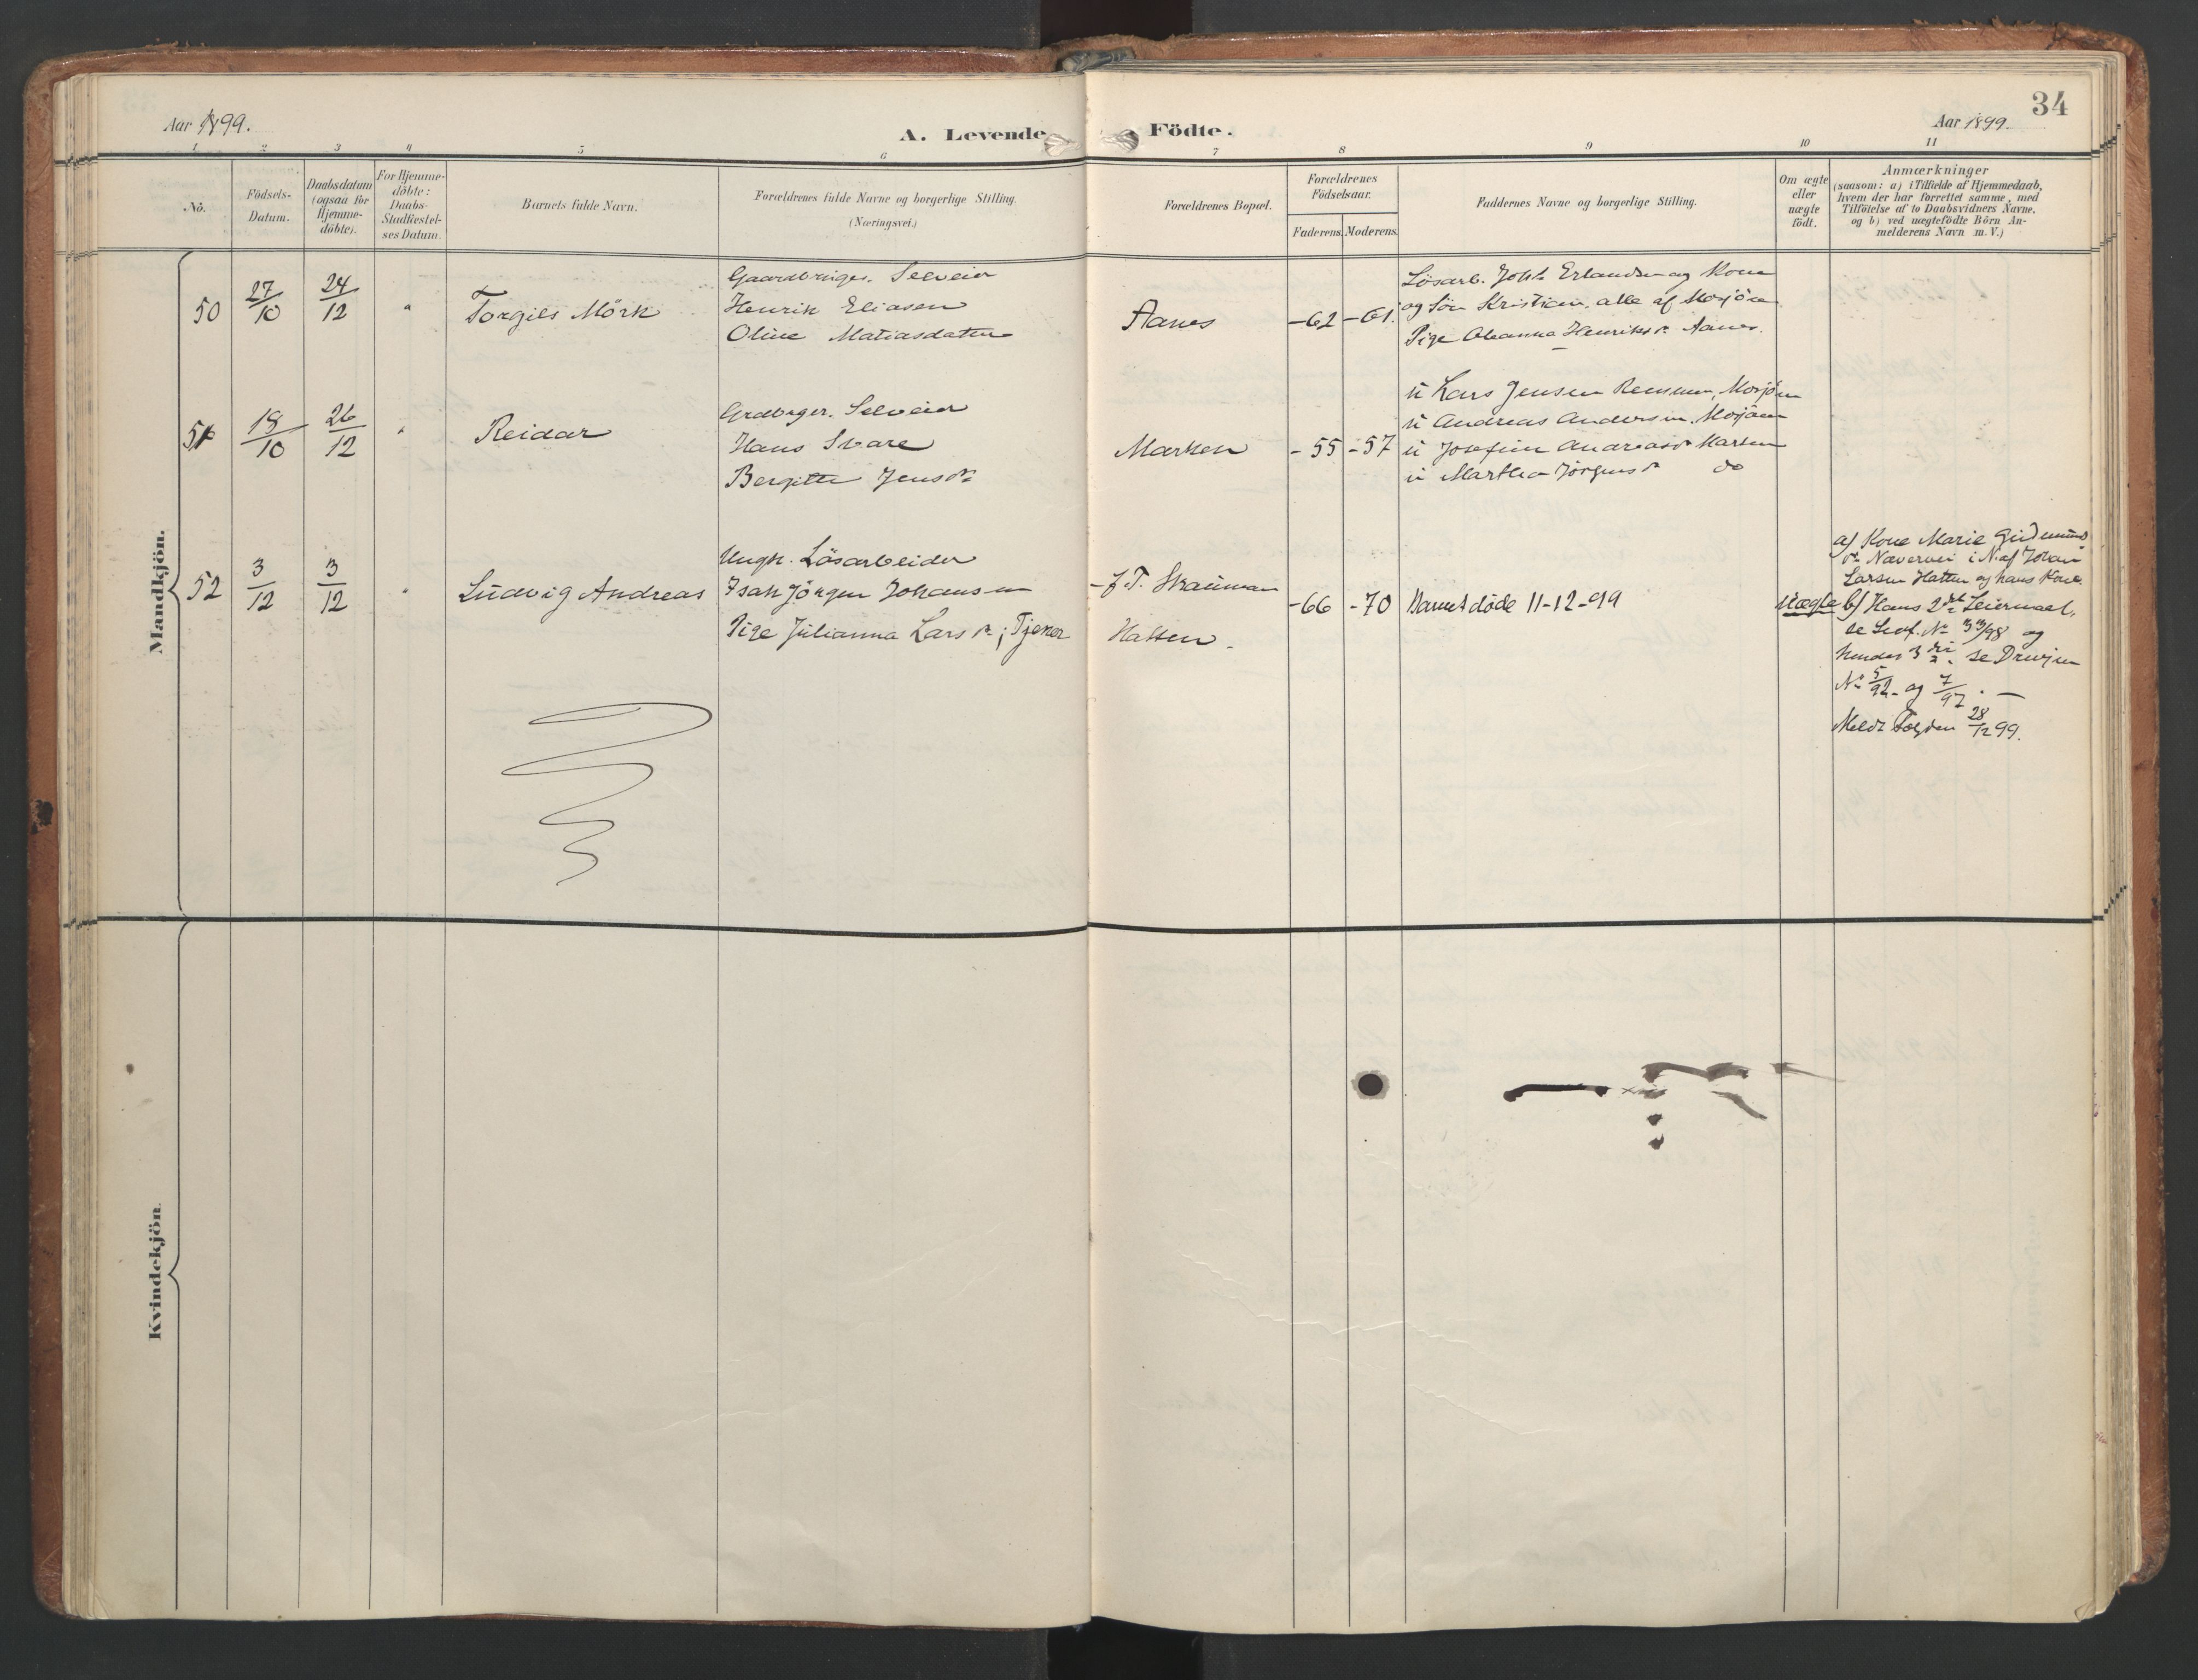 34
Aar 1899.
A. Levende Födte.
Aar 1899.
1 2 3 4 5 6 7 8 9 10 11
No.
Födsels-
Datum.
Daabsdatum
(ogsaa for
Hjemme-
döbte).
For Hjemme-
döbte:
Daabs-
Stadfæstel-
ses Datum.
Barnets fulde Navn.
Forældrenes fulde Navne og borgerlige Stilling.
(Næringsvei.)
Forældrenes Bopæl.
Forældrenes
Födselsaar.
Faderens. Moderens.
Faddernes Navne og borgerlige Stilling.
Om ægte
eller
uægte
födt.
Anmærkninger
(saasom: a) i Tilfælde af Hjemmedaab,
hvem der har forrettet samme, med
Tilföielse af to Daabsvidners Navne.
og b) ved uægtefödte Börn An-
melderens Navn m. V.)
Mandkjön.
50 27/10 24/12 " Torgils Mörk
Gaardbruger. Selveier
Henrik Eliasen
Oline Matiasdatter
Aanes
-62 -61.
Lösarb. Joh. Erlandsen og Kone
og Sön Kristian, alle af Mosjöen
Pige Henriksdr Aanes.
51 18/10 26/12 " Reidar
Grdbrger. Selveier
Hans Svare
Bergitte Jensdr
Marken
-55 -57
u Lars Jensen Mosjöen
u Andreas Andersen, Mosjöen
u Josefine Andreasdr Marken
u Martha Jörgensdr do
52 3/12 3/12 " Ludvig Andreas
Ungk. Lösarbeider
Isak Jörgen Johansen
Pige Julianna Larsdr; Tjener
- J. T. Skauman
Hatten.
-66 -70
Barnet döde 11-12-99
Uægte
af Kone Marie Gudmunds
dr i N. af Johan
Larsen Hatten og hans Kone.
b) Hans 2det Leiermaal,
se No 33/98 og
hendes 3die. se
No 5/92 og 7/97. —
Meldt Fogden 28/12 99.
Kvindekjön.